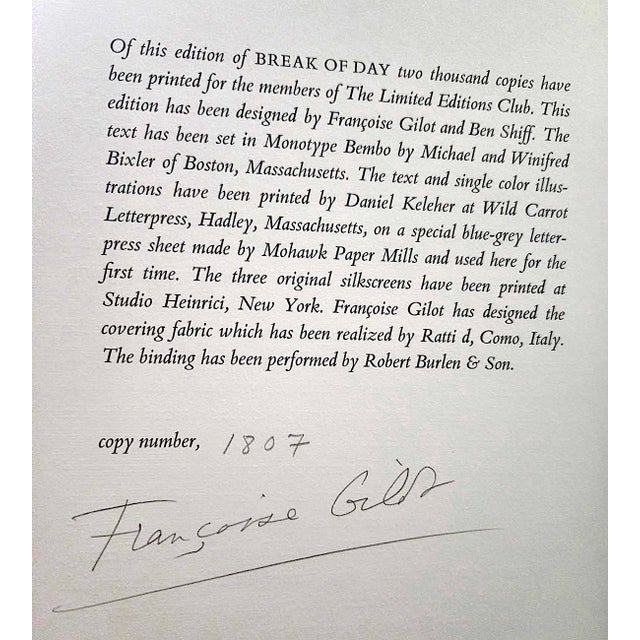 Of this edition of BREAK OF DAY two thousand copies have
been printed for the members of The Limited Editions Club. This
edition has been designed by Françoise Gilot and Ben Shiff. The
text has been set in Monotype Bembo by Michael and Winifred
Bixler of Boston, Massachusetts. The text and single color illus-
trations have been printed by Daniel Keleher at Wild Carrot
Letterpress, Hadley, Massachusetts, on a special blue-grey letter-
press sheet made by Mohawk Paper Mills and used here for the
first time. The three original silkscreens have been printed at
Studio Heinrici, New York. Françoise Gilot has designed the
covering fabric which has been realized by Ratti d, Como, Italy.
The binding has been performed by Robert Burlen & Son.
copy number, 1807
Françoise Gilot